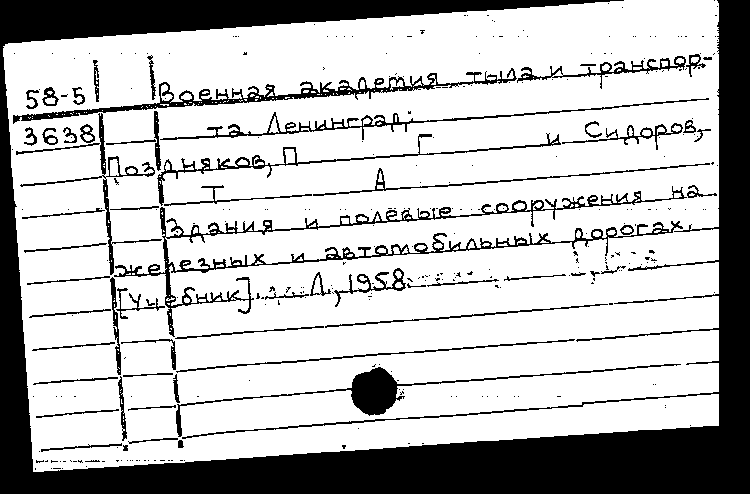 58-5 Военная академия тыла и транспор-
3638 та. Ленинград.
Поздняков, П Г и Сидоров,
Т А
Здания и полевые сооружения на
железных и автомобильных дорогах.
[Учебник]. Л., 1958.